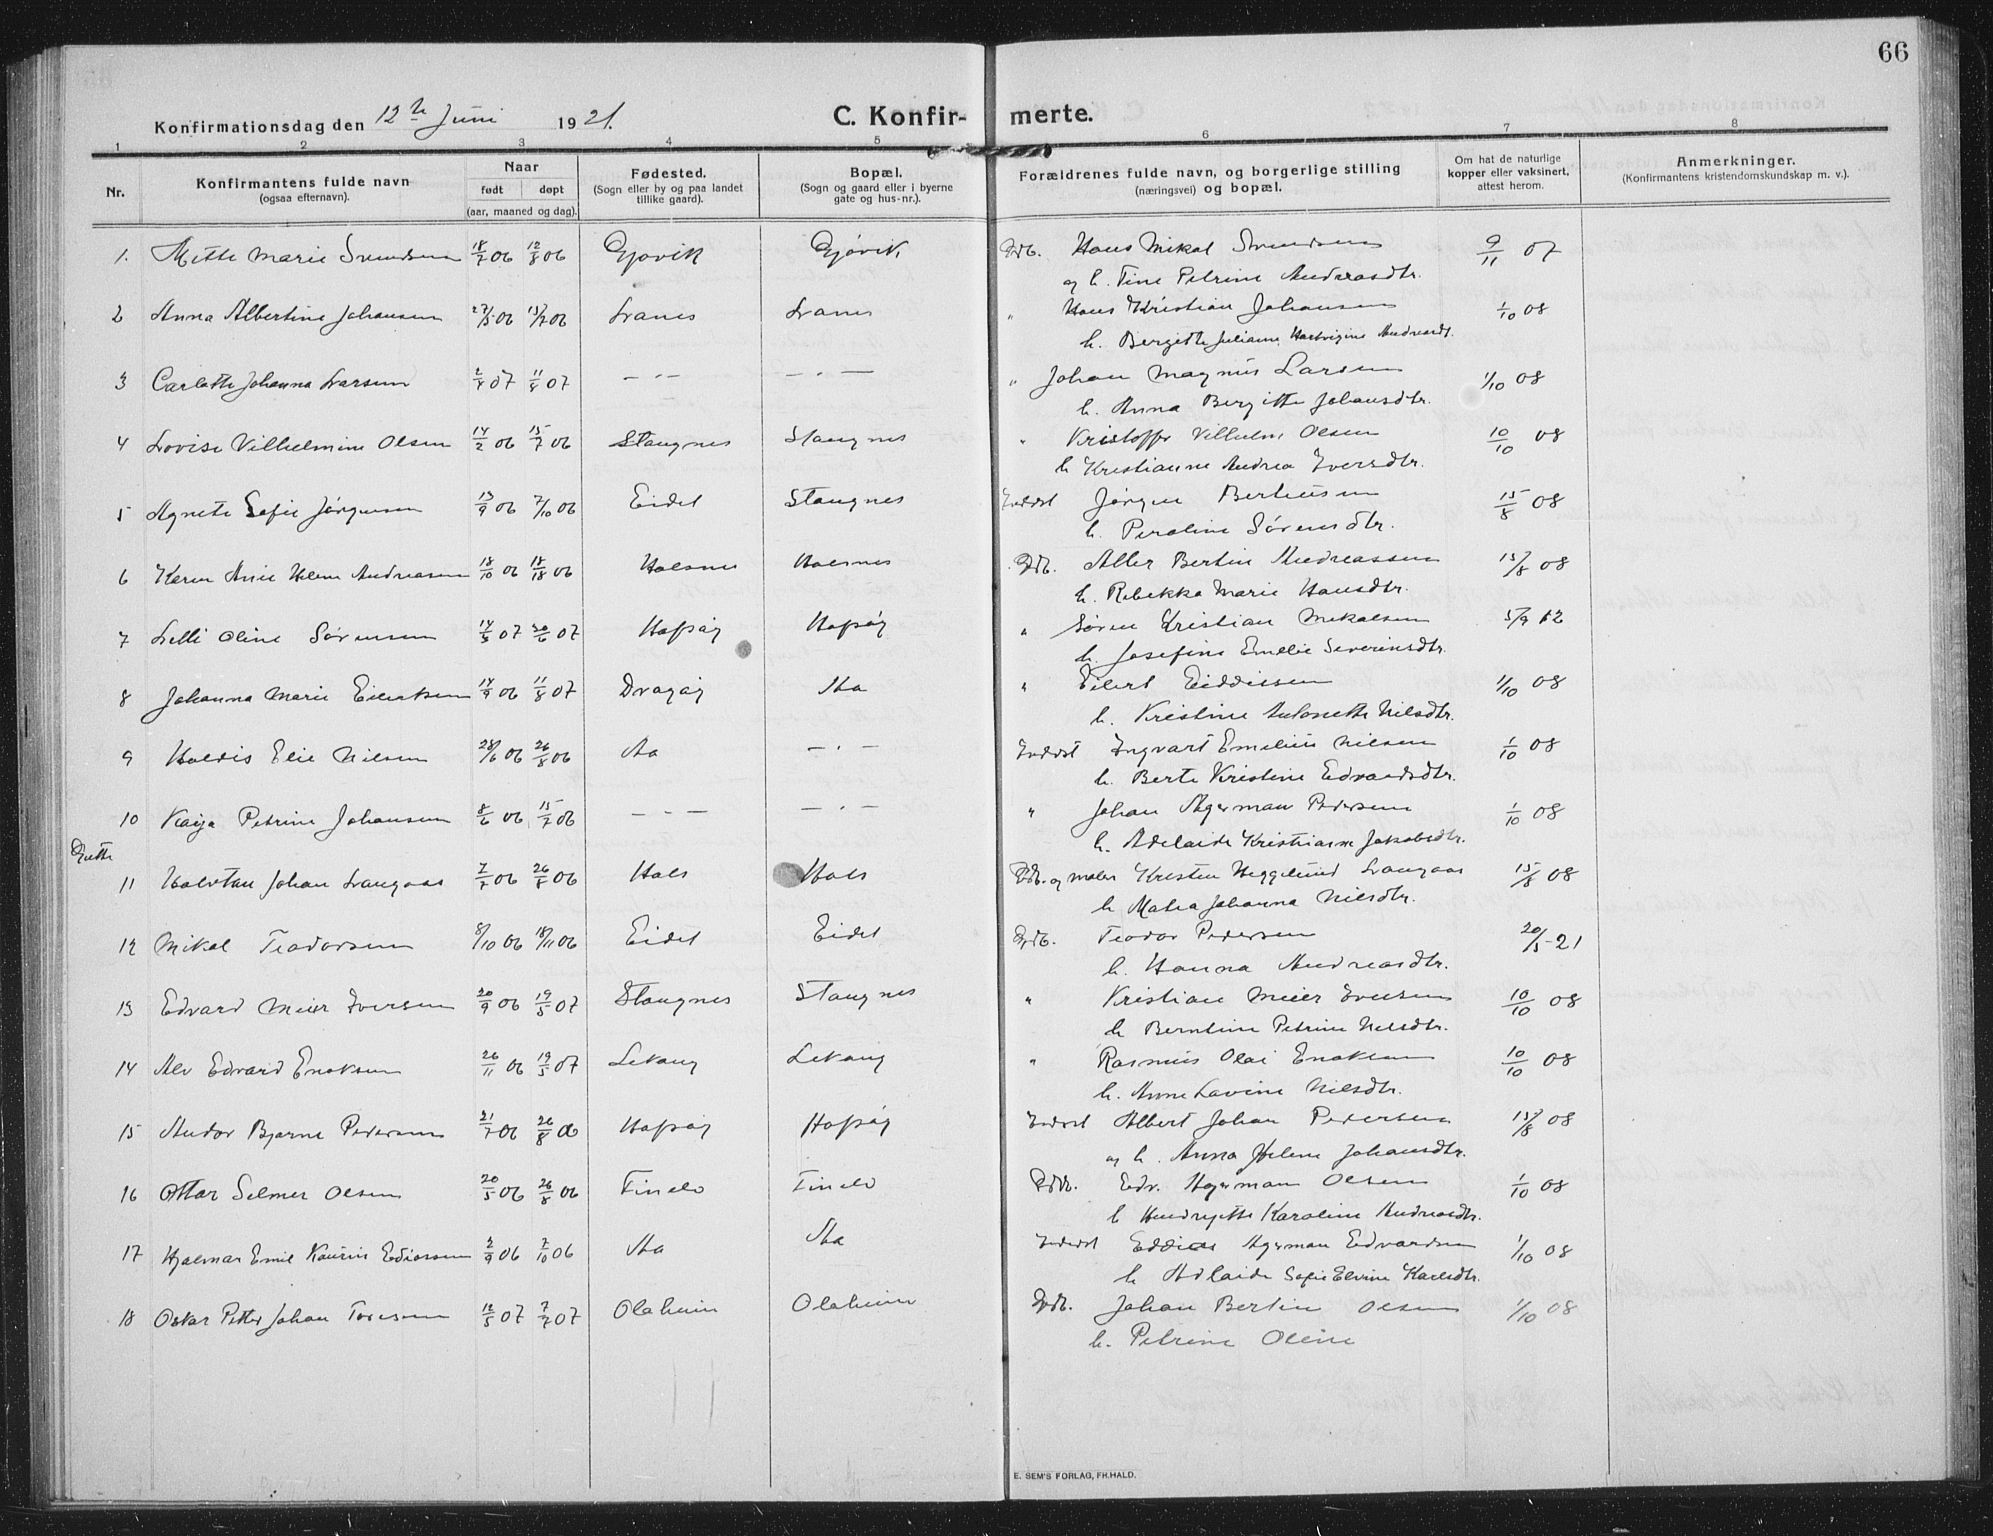 66
Konfirmationsdag den 12te Juni 1921.
C. Konfir- merte.
1 2 3 4 5 6 7 8
Nr. Konfirmantens fulde navn (ogsaa efternavn). Naar født døpt (aar, maaned og dag). Fødested. (Sogn eller by og paa landet tillike gaard). Bopæl. (Sogn og gaard eller i byerne gate og hus-nr.). Forældrenes fulde navn, og borgerlige stilling (næringsvei) og bopæl. Om hat de naturlige kopper eller vaksinert, attest herom. Anmerkninger. (Konfirmantens kristendomskundskap m. v.).
1. Mette Marie Svendsen 18/7 06 12/8 06 Gjøvik Gjøvik Hans Mikal Svendsen 9/11 07
og h. Tine Petrine Andreasdtr.
2 Anna Albertine Johansen 27/5 06 15/7 06 Lanes Lanes " Hans Kristian Johansen 1/10 08
h. Bergethe Juliane Hartvigine Andreasdt.
3 Carlotte Johanna Larsen 2/4 07 11/8 07 — " — — " — " Johan Magnus Larsen 1/10 08
h. Anna Bergitte Johansdtr.
4 Lovise Vilhelmine Olsen 14/2 06 15/7 06 Stangnes Stangnes " Kristoffer Vilhelm Olsen 10/10 08
h Kristianne Andrea Iversdtr.
5 Agnete Sofie Jørgensen 13/9 06 7/10 06 Eidet Stangnes Inderst Jørgen Berteusen 15/8 08
h. Peroline Sørensdtr.
6 Karen Anie Helene Andreasen 18/10 06 18/18 06 Halsnes Halsnes Albert Bertin Andreassen 15/8 08
h. Rebekka Marie Hansdtr.
7 Lelli Oline Sørensen 14/5 07 20/6 07 Hafsøy Hofsøy " Søren Kristian Mikalsen 5/9 12
h. Josefine Emelie Severinsdtr.
8 Johanna Marie Eilertsen 14/9 06 11/8 07 Dragøy Aa " Eilert Eiddissen 1/10 08
h. Kristine Antonette Nilsdtr.
9 Haldis Elie Nilsen 28/6 06 26/8 06 Aa — " — Inderst Ingvart Emelius Nilsen 1/10 08
h. Berte Kristine Edvardsdtr.
10 Kaija Petrine Johansen 8/6 06 15/7 06 — " — — " — " Johan Agerman Pedersen 1/10 08
h. Adelaide Kristianne Jakobsdtr.
Gutter
11 Halvtan Johan Langaas 7/7 06 26/8 06 Hals Hals Gdb. og maler Kristen Heggelund Langaas 15/8 08
h Matea Johanna Nilsdtr.
12 Mikal Teodorsen 8/10 06 18/11 06 Eidet Eidet Teodor Pedersen 20/5-21
h. Hanna Andreasdtr.
13 Edvard Meier Iversen 20/9 06 19/5 07 Stangnes Stangnes " Kristian Meier Iversen 10/10 08
h Berntine Petrine Nilsdtr.
14 Alv Edvard Enoksen 26/11 06 19/5 07 Lekang Lekang " Rasmus Olai Enoksen 10/10 08
h. Anne Lovine Nilsdtr.
15 Andor Bjarne Pedersen 21/7 06 26/8 06 Hofsøy Hofsøy Inderst Albert Johan Pedersen 15/8 08
og h. Anna Helene Johansdtr.
16 Ottar Selmer Olsen 20/5 06 26/8 06 Tinelv Tinelv Gdb. Edv. Agerman Olsen 1/10 08
h Hendryette Karoline Andreasdtr.
17 Hjalmar Emil Kaurin Ediassen 2/9 06 7/10 06 Aa Aa Inderst Eddias Agerman Edvardsen 1/10 08
h Adlaide Sofie Elvine Karlsdtr.
18 Oskar Petter Johan Toresen 12/5 07 7/7 07 Olaheim Olaheim Gdb. Johan Bertin Olsen 1/10 08
h. Petrine Oline
E. SEM'S FORLAG, FR.HALD.